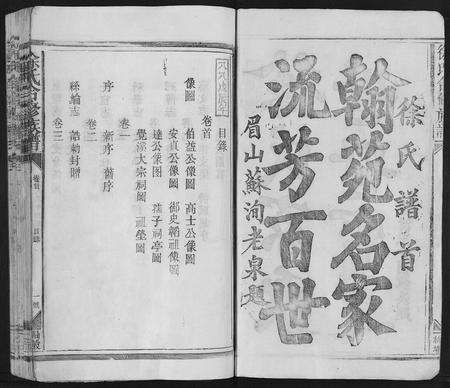 徐氏譜首
翰苑名家
流芳百世
眉山蘇洵老泉題
目錄
卷首
像圖
伯益公像圖 高士公像圖
安貞公像圖 御史韜祖像圖
達公像圖 孺子祠亭圖
大宗祠圖 祖塋圖
卷一
序 新序 舊序
卷二
誥勅封贈
卷三
卷首
目錄